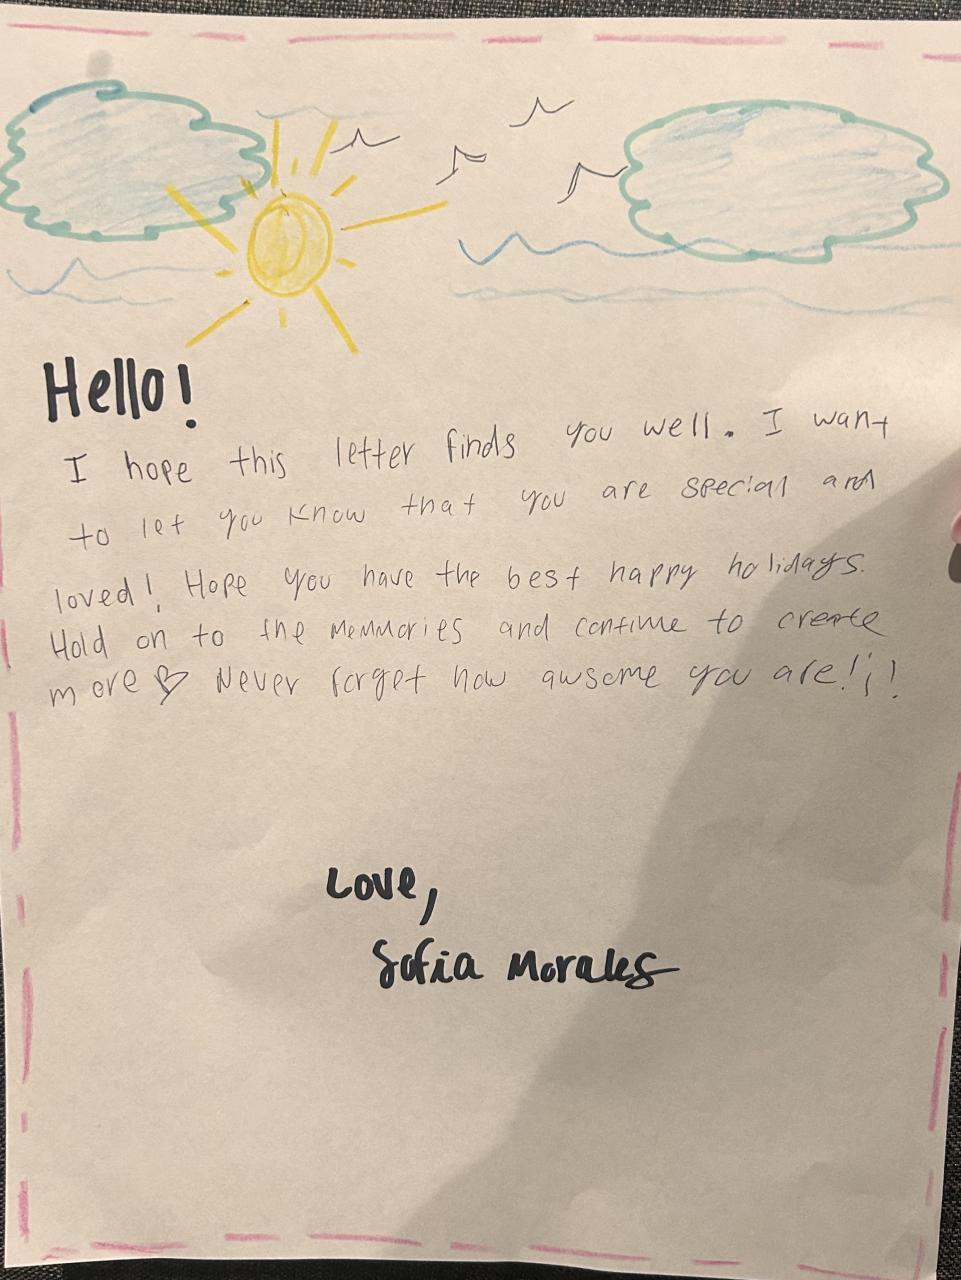 Hello!
I hope this letter finds you well. I want
to let you know that you are special and
loved! Hope you have the best happy holidays.
Hold on to the memmories and continue to create
more ♡ Never forget how awsome you are!¡!
Love,
Sofia Morales